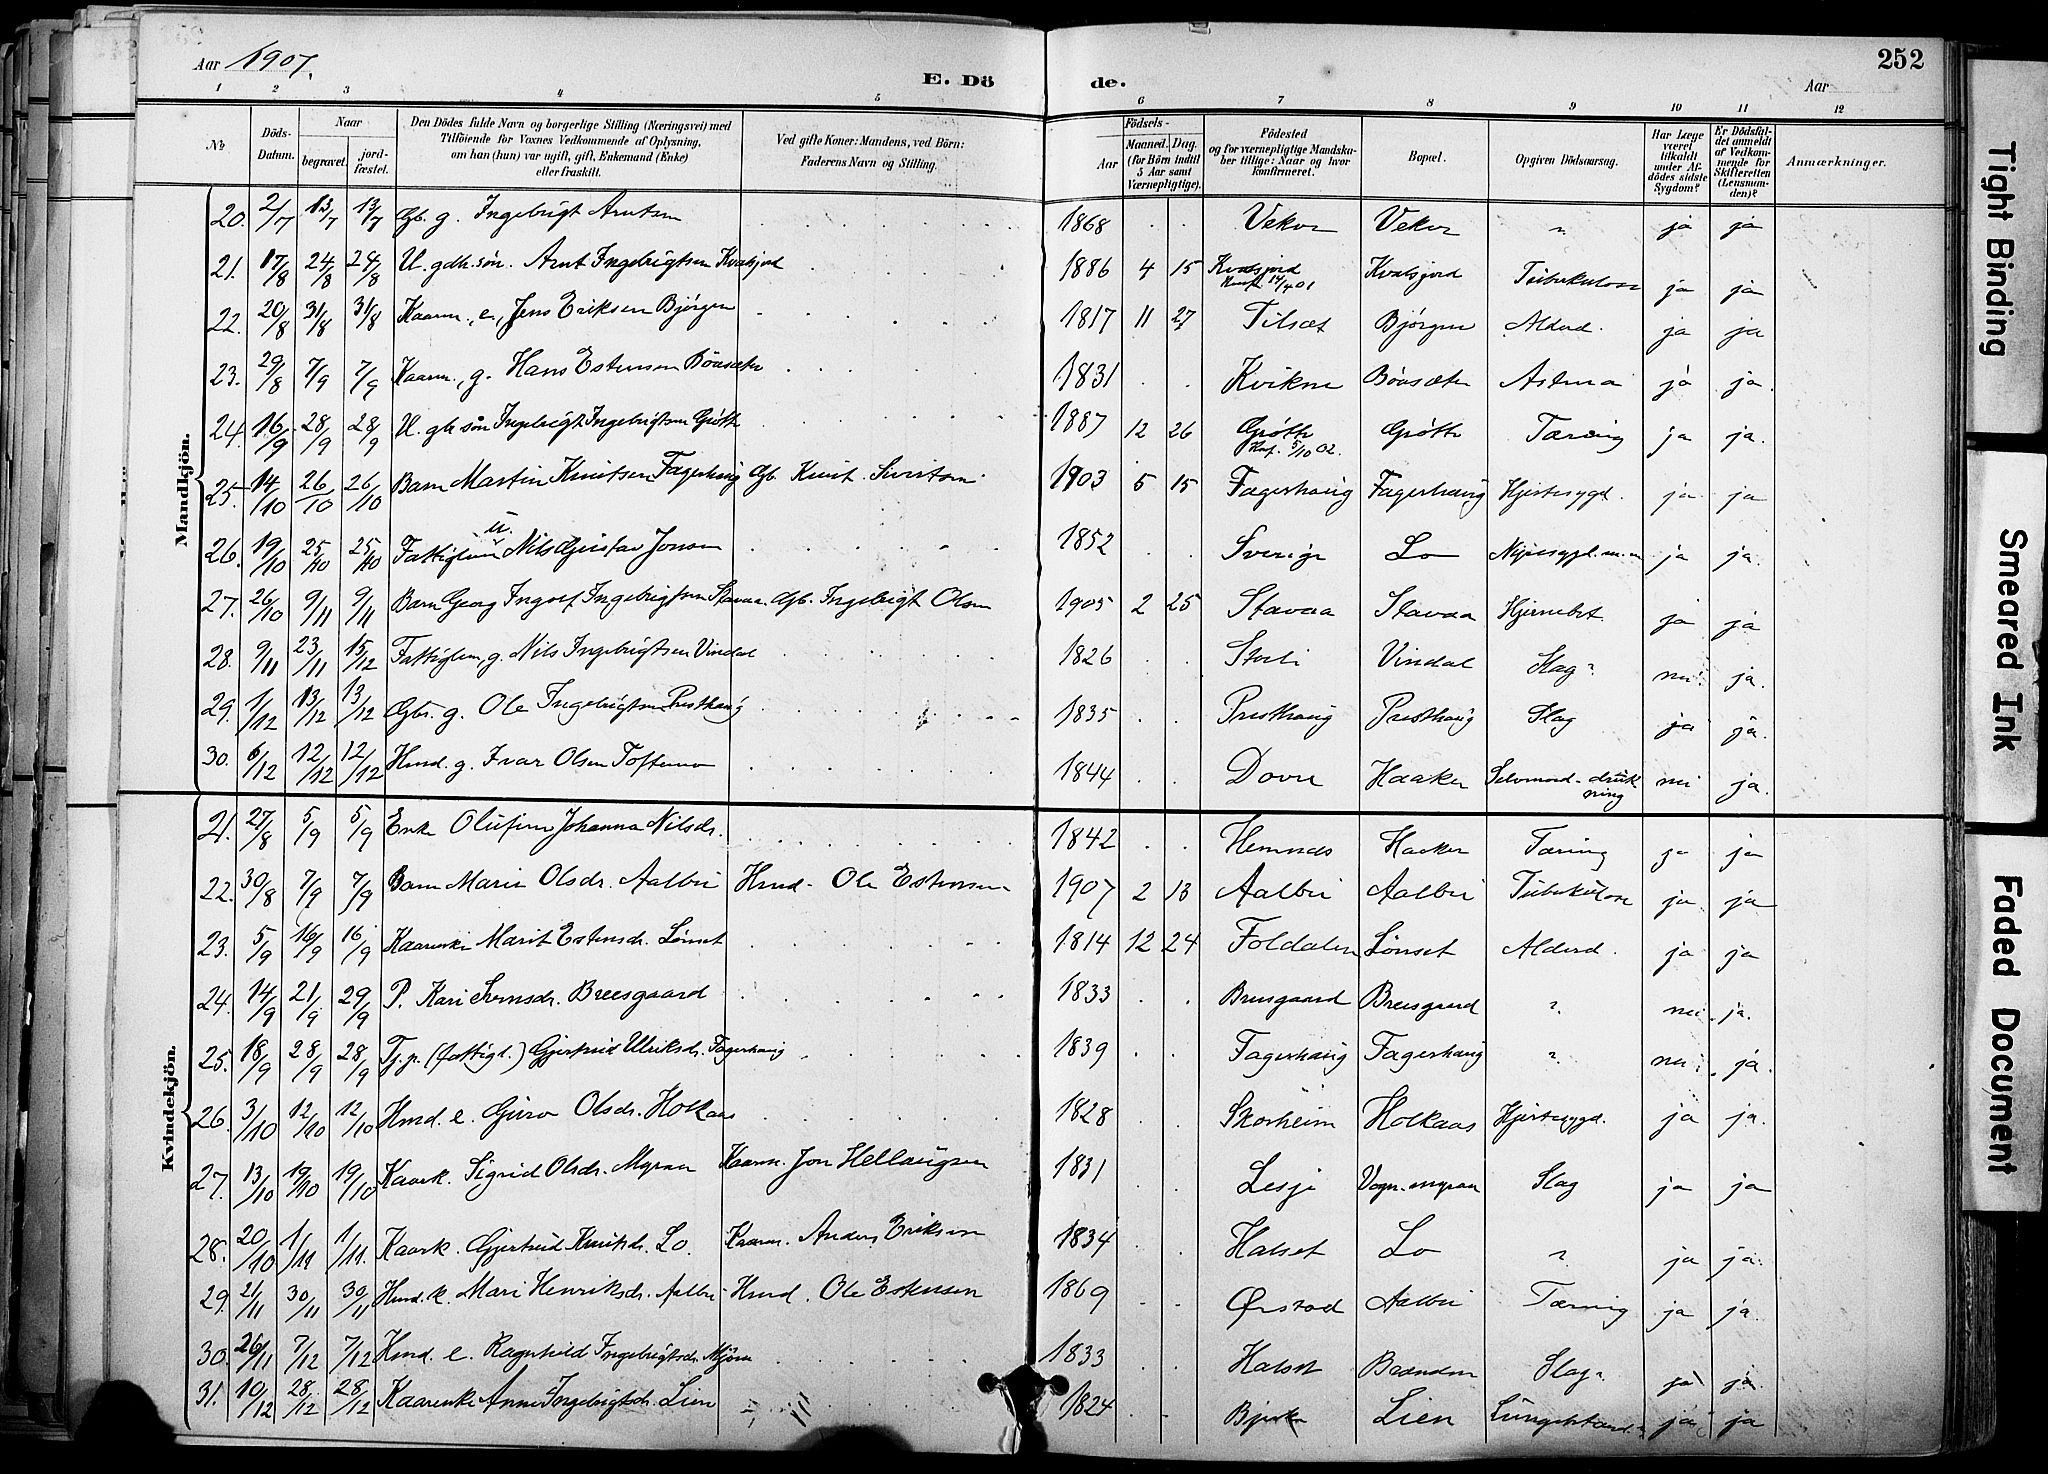 Aar 1907.
E. Dö
de.
Aar
252
1 2 3 4 5 6 7 8 9 10 11 12
No
Döds-Datum.
Naar
begravet.
jord-fæstet.
Den Dödes fulde Navn og borgerlige Stilling (Næringsvei) med
Tilföiende for Voxnes Vedkommende af Oplysning,
om han (hun) var ugift, gift, Enkemand (Enke)
eller fraskilt.
Ved gifte Koner: Mandens, ved Börn:
Faderens Navn og Stilling.
Födsels-
Aar
Maaned. Dag.
(for Börn indtil
5 Aar samt
Værnepligtige).
Födested
og for værnepligtige Mandska-
ber tillige: Naar og hvor
konfirmeret.
Bopæl.
Opgiven Dödsaarsag.
Har Læge
været
tilkaldt
under Af-
dödes sidste
Sygdom?
Er Dödsfal-
det anmeldt
af Vedkom-
mende for
Skifteretten
(Lensman-
den)?
Anmærkninger.
Mandkjön.
20. 2/7 13/7 13/7 Gb. g. Ingebrigt Arntsen 1868 Vekve Vekve " ja ja
21. 17/8 24/8 24/8 U. gdb. søn. Arnt Ingebrigtsen Kvalsjord 1886 4 15 Kvalsjord Kvalsjord Tuberkulose ja ja
Konf. 14/4 01
22. 20/8 31/8 31/8 Kaarm., e., Jens Eriksen Bjørgen 1817 11 27 Tilset Bjørgen Alderd. ja ja
23. 29/8 7/9 7/9 Kaarm., g. Hans Estensen Böasæter 1831 Kvikne Böasæter Astma ja ja.
24. 16/9 28/9 28/9 U. gb søn Ingebrigt Ingebrigtsen Grøtte 1887 12 26 Grøtte Grøtte Tæring ja ja.
Konf. 5/10 02.
25. 14/10 26/10 26/10 Barn Martin Knutsen Fagerhaug Gb. Knut Sivertsen 1903 5 15 Fagerhaug Fagerhaug Hjertesygd. ja ja
26. 19/10 25/10 25/10 Fattiglem u. Nils Gustav Jonsen 1852 Sverige Lo Nyresygd. m.m ja ja.
27. 26/10 9/11 9/11 Barn Georg Ingolf Ingebrigtsen Stavaa. Gb. Ingebrigt Olsen 1905 2 25 Stavaa Stavaa Hjernebet. ja ja
28. 9/11 23/11 15/12 Fattiglem, g. Nils Ingebrigtsen Vindal 1826 Storli Vindal Slag? nei. ja.
29. 1/12 13/12 13/12 Gbr. g. Ole Ingebrigtsen Presthaug 1835 Presthaug Presthaug Slag ja ja.
30. 6/12 12/12 12/12 Hmd. g. Ivar Olsen Toftemo 1844 Dovre Haaker Selvmord - drukning nei ja.
Kvindekjön.
21. 27/8 5/9 5/9 Enke Olufine Johanna Nilsdr. 1842 Hemnds Haaker Tæring ja ja
22. 30/8 7/9 7/9 Barn Marie Olsdr. Aalbu Hmd. Ole Estensen 1907 2 13 Aalbu Aalbu Tuberkulose ja ja
23. 5/9 16/9 16/9 Kaarenke Marit Estensdr. Lønset 1814 12 24 Foldalen Lønset Alderd. ja ja
24. 14/9 21/9 29/9 P. Kari Svensdr. Breesgaard 1833 Breesgaard Breesgaard ? nei. ja.
25. 18/9 28/9 28/9 Tj.p. (fattigl.) Gjertrud Ulriksdr. Fagerhaug 1839 Fagerhaug Fagerhaug ? nei. ja.
26. 3/10 12/10 12/10 Hmd. e. Guro Olsdr. Holkaas 1828 Skorheim Holkaas Hjertesygd. ja ja.
27. 13/10 19/10 19/10 Kaark. Sigrid Olsdr. Myran Kaarm. Jon Hellaugsen 1831 Lesje Vogn.myran Slag ja ja
28. 20/10 1/11 1/11. Kaark. Gjertrud Knutsdr. Lo. Kaarm. Anders Eriksen 1834 Halset Lo ? ja ja.
29. 21/11 30/11 30/11 Hmd. k. Mari Henriksdr. Aalbu Hmd. Ole Estensen 1869 Ørstad Aalbu Tæring ja ja.
30. 26/11 7/12 7/12 Hmd. e. Ragnhild Ingebrigtsdr. Mjøen 1833 Halset Slag? ja ja
31. 10/12 28/12 28/12 Kaarenke Anne Ingebrigtsdr. Lien 1824 Lien ja ja
Tight Binding
Smeared Ink
Faded Document